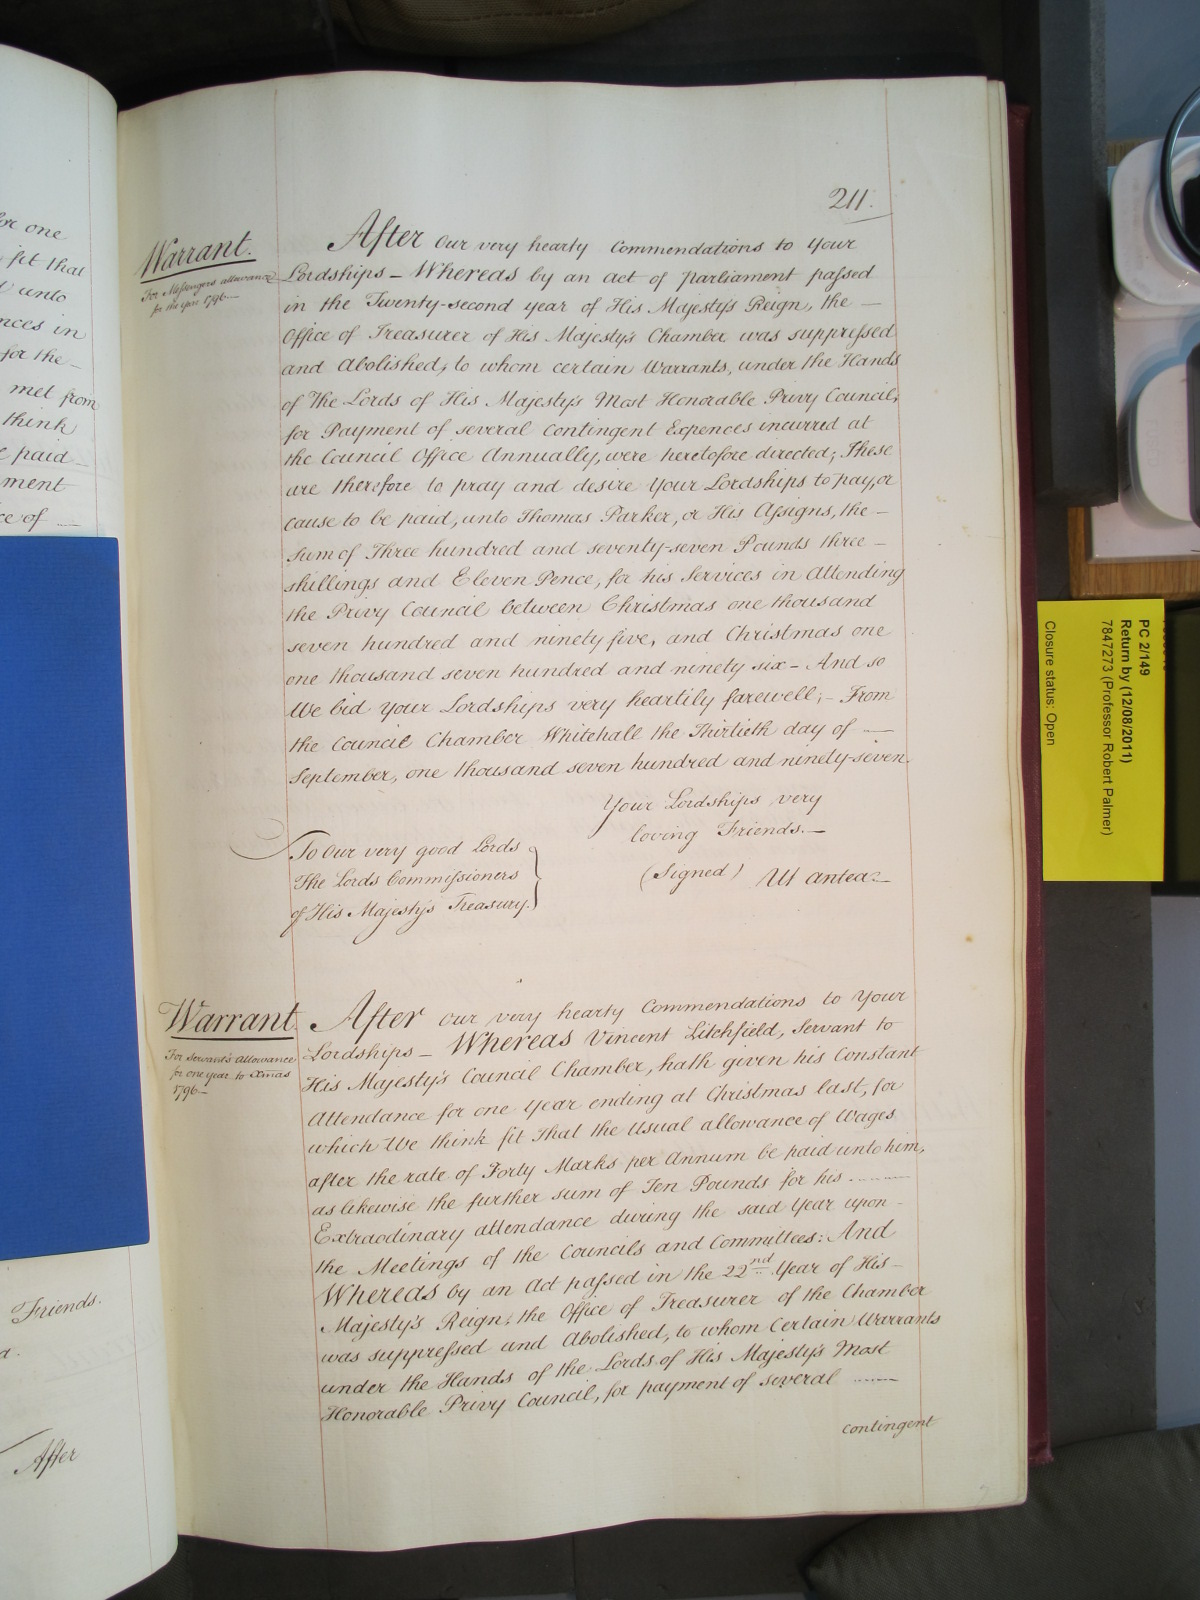 for one
fit that
unto
nces in
for the
met from
think
paid
ment
ce of
Friends.
After
211.
Warrant.
For Messengers allowance
for the year 1796
After our very hearty Commendations to Your
Lordships – Whereas by an act of parliament passed
in the Twenty-second year of His Majesty's Reign, the
Office of Treasurer of His Majesty's Chamber was suppressed
and Abolished, to whom certain Warrants, under the Hands
of The Lords of His Majesty's Most Honorable Privy Council,
for Payment of several Contingent Expences incurred at
the Council Office Annually, were heretofore directed; These
are therefore to pray and desire Your Lordships to pay, or
cause to be paid, unto Thomas Parker, or His Assigns, the –
sum of Three hundred and seventy-seven Pounds three –
shillings and Eleven Pence, for his Services in Attending
the Privy Council between Christmas one thousand
seven hundred and ninety five, and Christmas one
one thousand seven hundred and ninety six – And so
We bid Your Lordships very heartily farewell; – From
the Council Chamber Whitehall the Thirtieth day of –
September, one thousand seven hundred and ninety-seven.
Your Lordships very
loving Friends. –
(Signed) Ut antea –
To Our very good Lords
The Lords Commissioners
of His Majesty's Treasury.
Warrant.
For Servant's Allowance
for one year to Xmas
1796 –
After our very hearty Commendations to Your
Lordships – Whereas Vincent Litchfield, Servant to
His Majesty's Council Chamber, hath given his Constant
Attendance for one Year ending at Christmas last, for
which We think fit That the Usual allowance of Wages
after the rate of Forty Marks per Annum be paid unto him,
as likewise the further sum of Ten Pounds for his
Extraodinary attendance during the said Year upon –
the Meetings of the Councils and Committees: And
Whereas by an Act passed in the 22nd Year of His –
Majesty's Reign, the Office of Treasurer of the Chamber
was suppressed and Abolished, to whom Certain Warrants
under the Hands of the Lords of His Majesty's Most
Honorable Privy Council, for payment of several
contingent
PC 2/149
Return by (12/08/2011)
7847273 (Professor Robert Palmer)
Closure status: Open